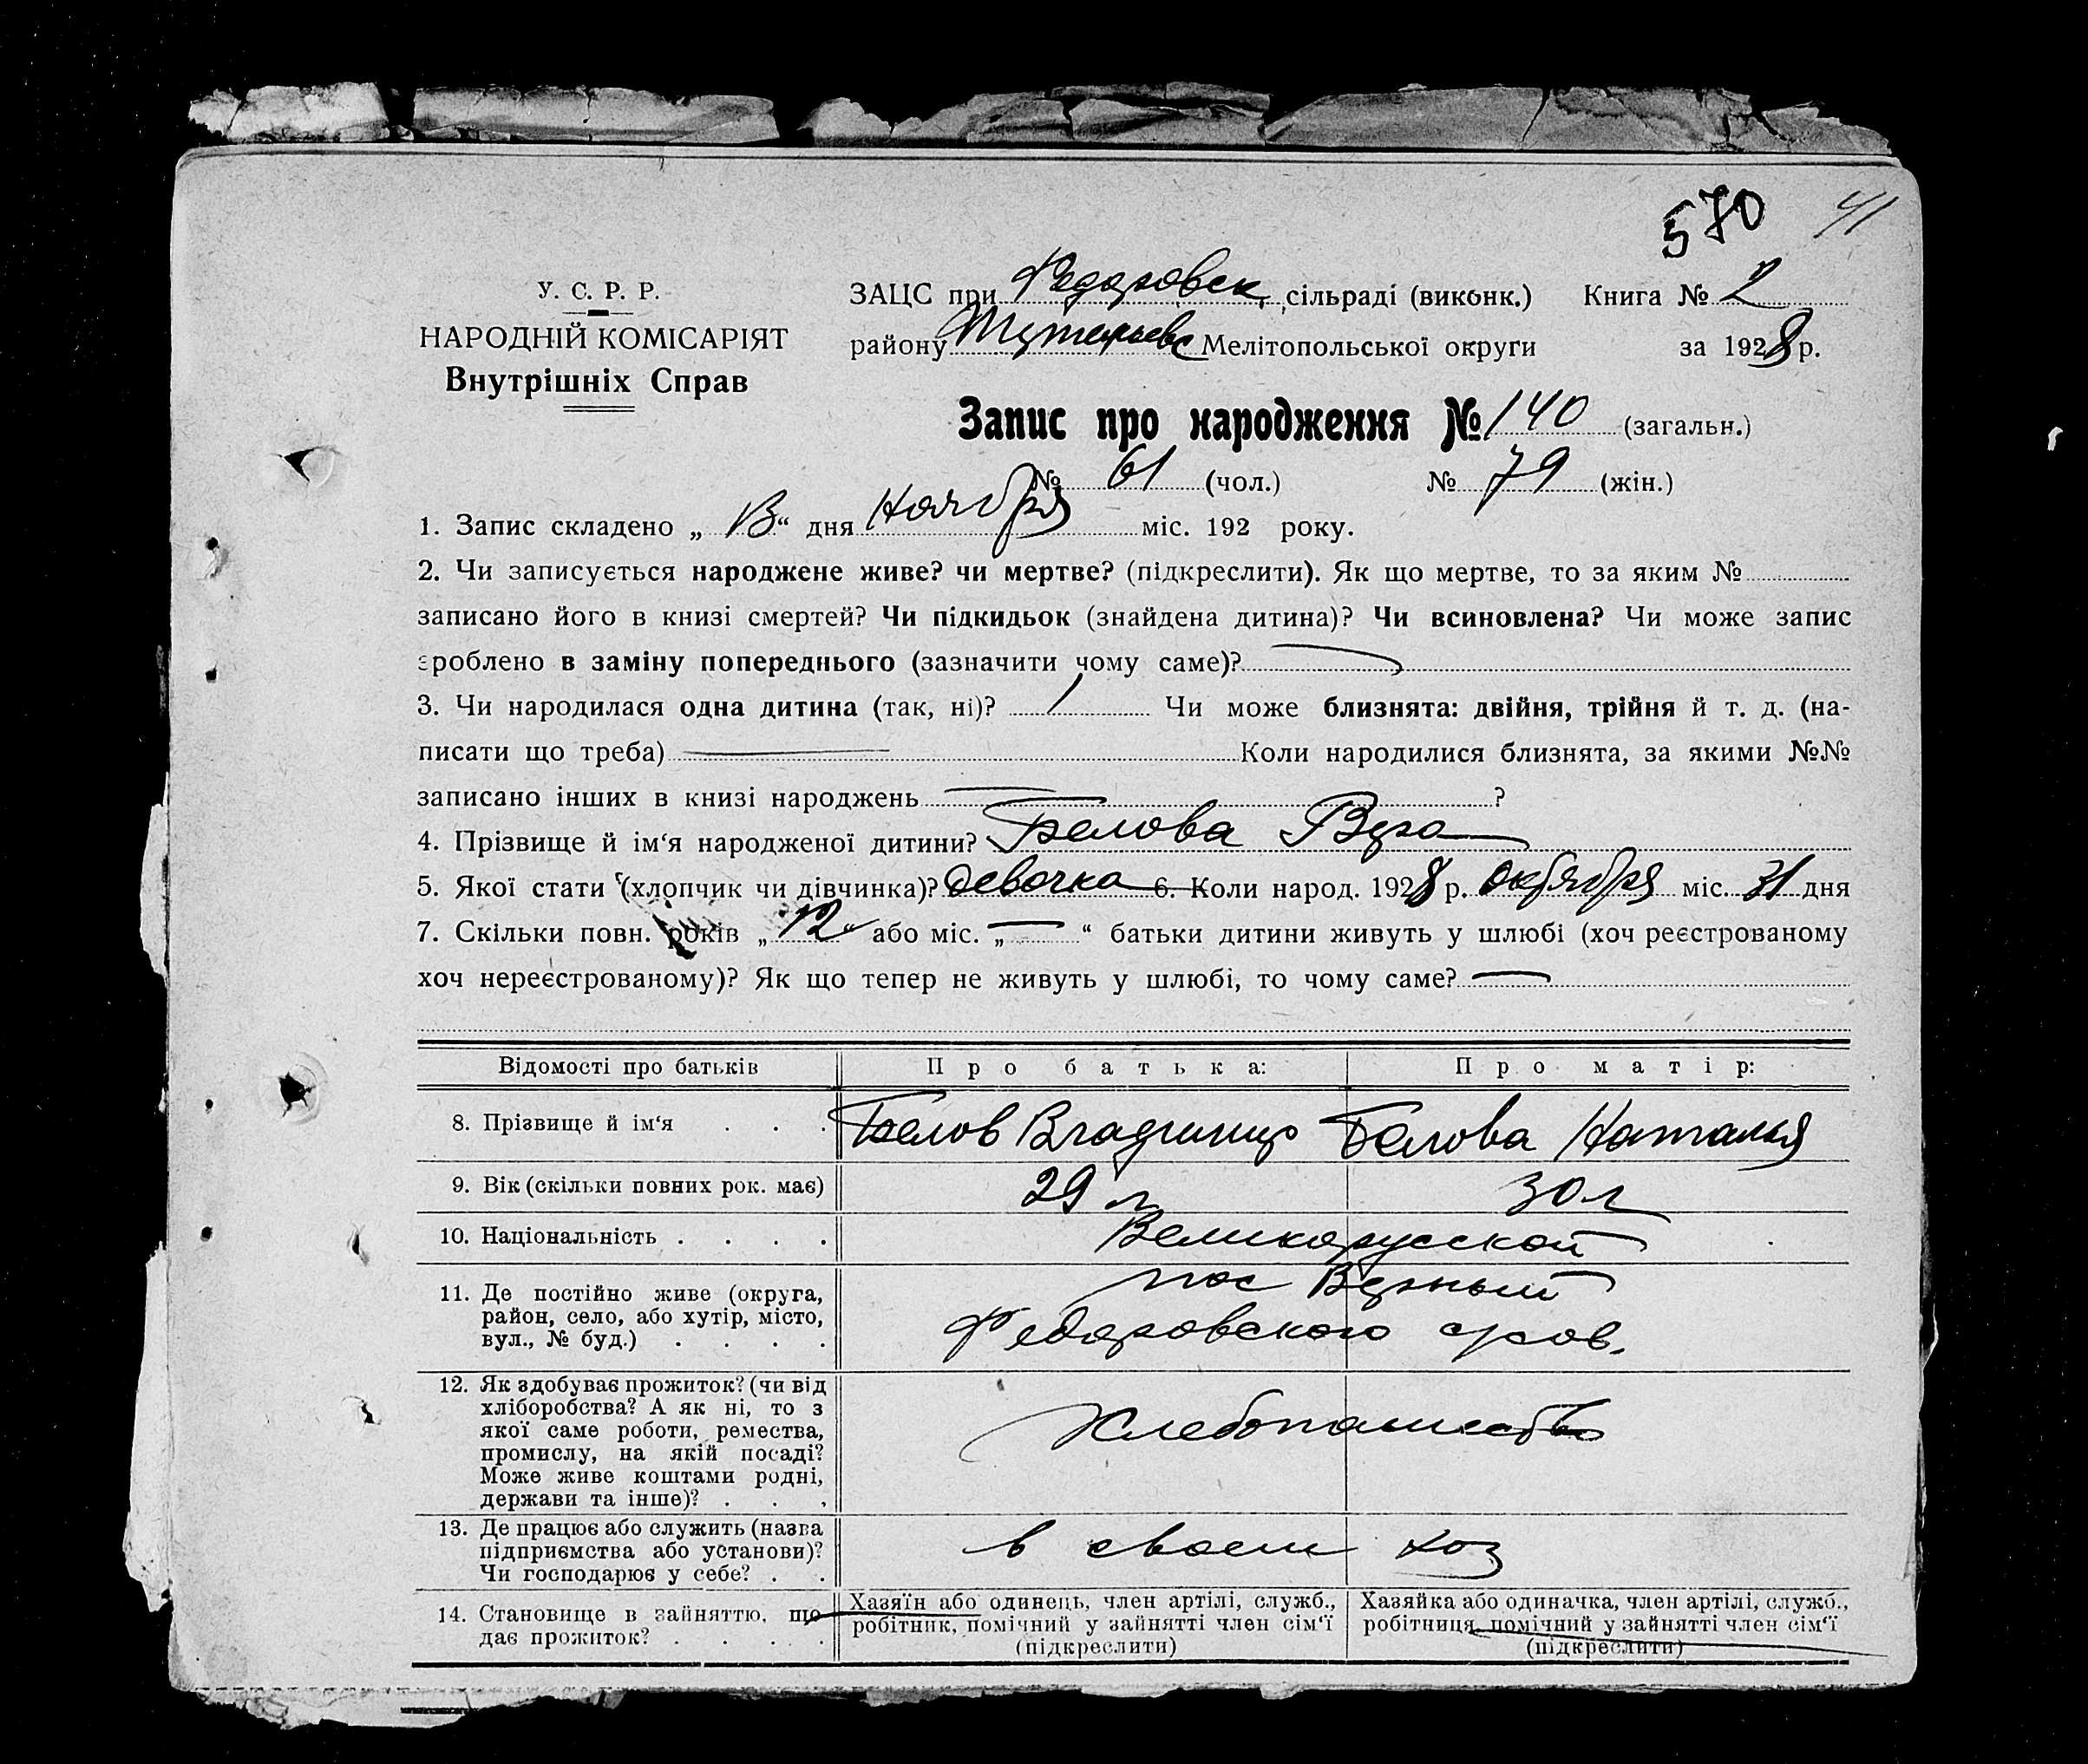 570 41
У. С. Р. Р.
НАРОДНІЙ КОМІСАРІЯТ
Внутрішніх Справ
ЗАЦС при Федоровск. сільраді (виконк.) Книга № 2
району Мелітопольської округи за 1928 р.
Запис про народження № 140 (загальн.)
№ 61 (чол.) № 79 (жін.)
1. Запис складено „ 13 “ дня Ноября міс. 192 року.
2. Чи записується народжене живе? чи мертве? (підкреслити). Як що мертве, то за яким №
записано його в книзі смертей? Чи підкидьок (знайдена дитина)? Чи всиновлена? Чи може запис
зроблено в заміну попереднього (зазначити чому саме)?
3. Чи народилася одна дитина (так, ні)? 1 Чи може близнята: двійня, трійня й т. д. (на-
писати що треба) Коли народилися близнята, за якими №№
записано інших в книзі народжень ?
4. Прізвище й ім‘я народженої дитини? Белова Вера
5. Якої стати (хлопчик чи дівчинка)? девочка 6. Коли народ. 1928 р. октября міс. 31 дня
7. Скільки повн. років „ 12 “ або міс. „ — “ батьки дитини живуть у шлюбі (хоч реєстрованому
хоч нереєстрованому)? Як що тепер не живуть у шлюбі, то чому саме? —
Відомості про батьків Про батька: Про матір:
8. Прізвище й ім‘я . . . Белов Владимир Белова Наталья
9. Вік (скільки повних рок. має) 29 л 30 л
10. Національність . . . . Великорусской
11. Де постійно живе (округа, район, село, або хутір, місто, вул., № буд.) . . . . пос Верный
Федоровского
12. Як здобуває прожиток? (чи від хліборобства? А як ні, то з якої саме роботи, ремества, промислу, на якій посаді? Може живе коштами родні, держави та інше)? . . . Хлебопашество
13. Де працює або служить (назва підприємства або установи)? Чи господарює у себе? . . в своем хоз
14. Становище в зайняттю, що дає прожиток? . . . .
Хазяїн або одинець, член артілі, служб., робітник, помічний у зайнятті член сім‘ї (підкреслити)
Хазяйка або одиначка, член артілі, служб., робітниця, помічний у зайнятті член сім‘ї (підкреслити)